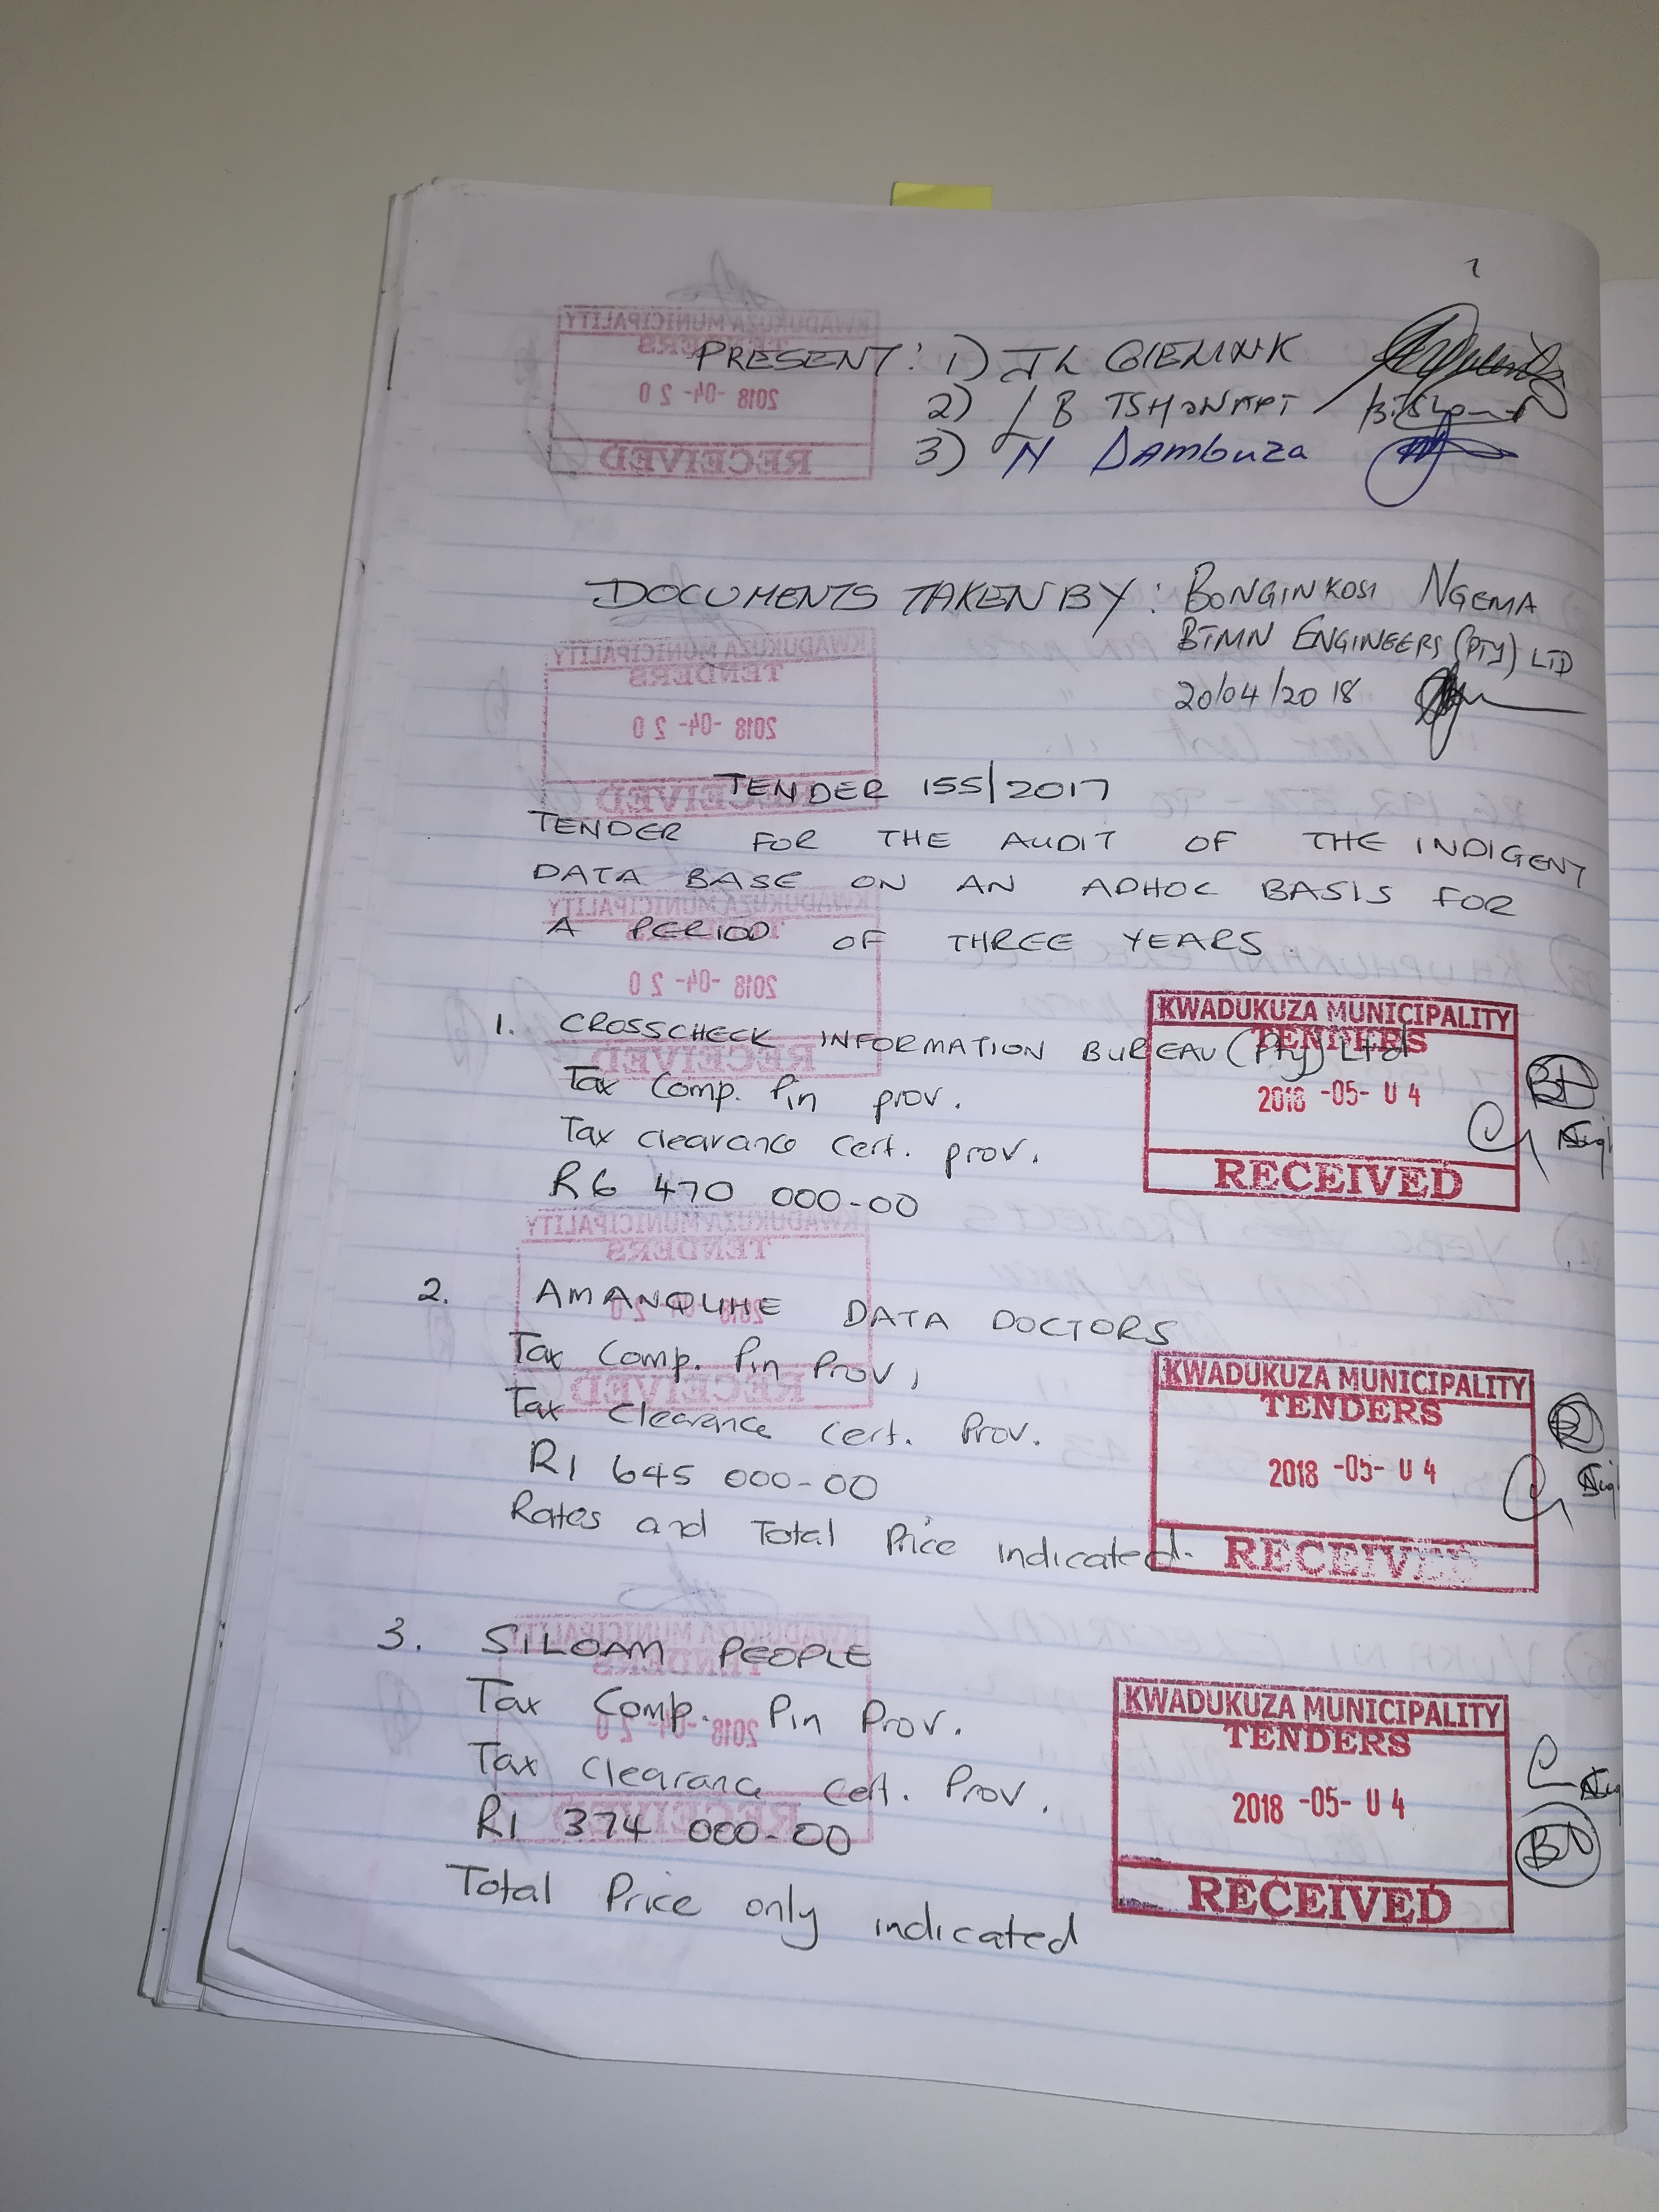 PRESENT: 1) JL GIELINK
2) L B TSHONAPI
3) N Dambuza
DOCUMENTS TAKEN BY: BONGINKOSI NGEMA
BTMN ENGINEERS (PTY) LTD
20/04/2018
TENDER 155/2017
TENDER FOR THE AUDIT OF THE INDIGENT
DATA BASE ON AN ADHOC BASIS FOR
A PERIOD OF THREE YEARS.
1. CROSSCHECK INFORMATION BUREAU (Pty) Ltd
Tax Comp. Pin prov.
Tax clearance cert. prov.
R6 470 000-00
KWADUKUZA MUNICIPALITY
TENDERS
2018 -05- 04
RECEIVED
2. AMANQUHE DATA DOCTORS
Tax Comp. Pin Prov.
Tax Clearance Cert. Prov.
R1 645 000-00
Rates and Total Price indicated.
KWADUKUZA MUNICIPALITY
TENDERS
2018 -05- 04
RECEIVED
3. SILOAM PEOPLE
Tax Comp. Pin Prov.
Tax Clearance Cert. Prov.
R1 374 000-00
Total Price only indicated
KWADUKUZA MUNICIPALITY
TENDERS
2018 -05- 04
RECEIVED